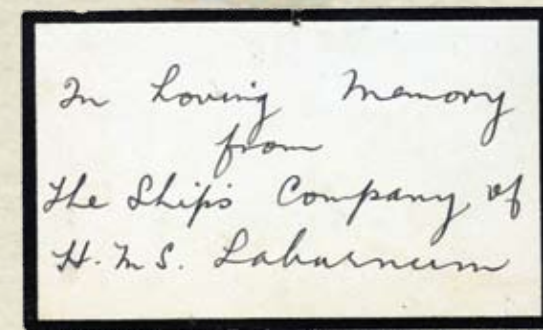 In Loving Memory
from
The Ship's Company of
H.M.S. Laburnum